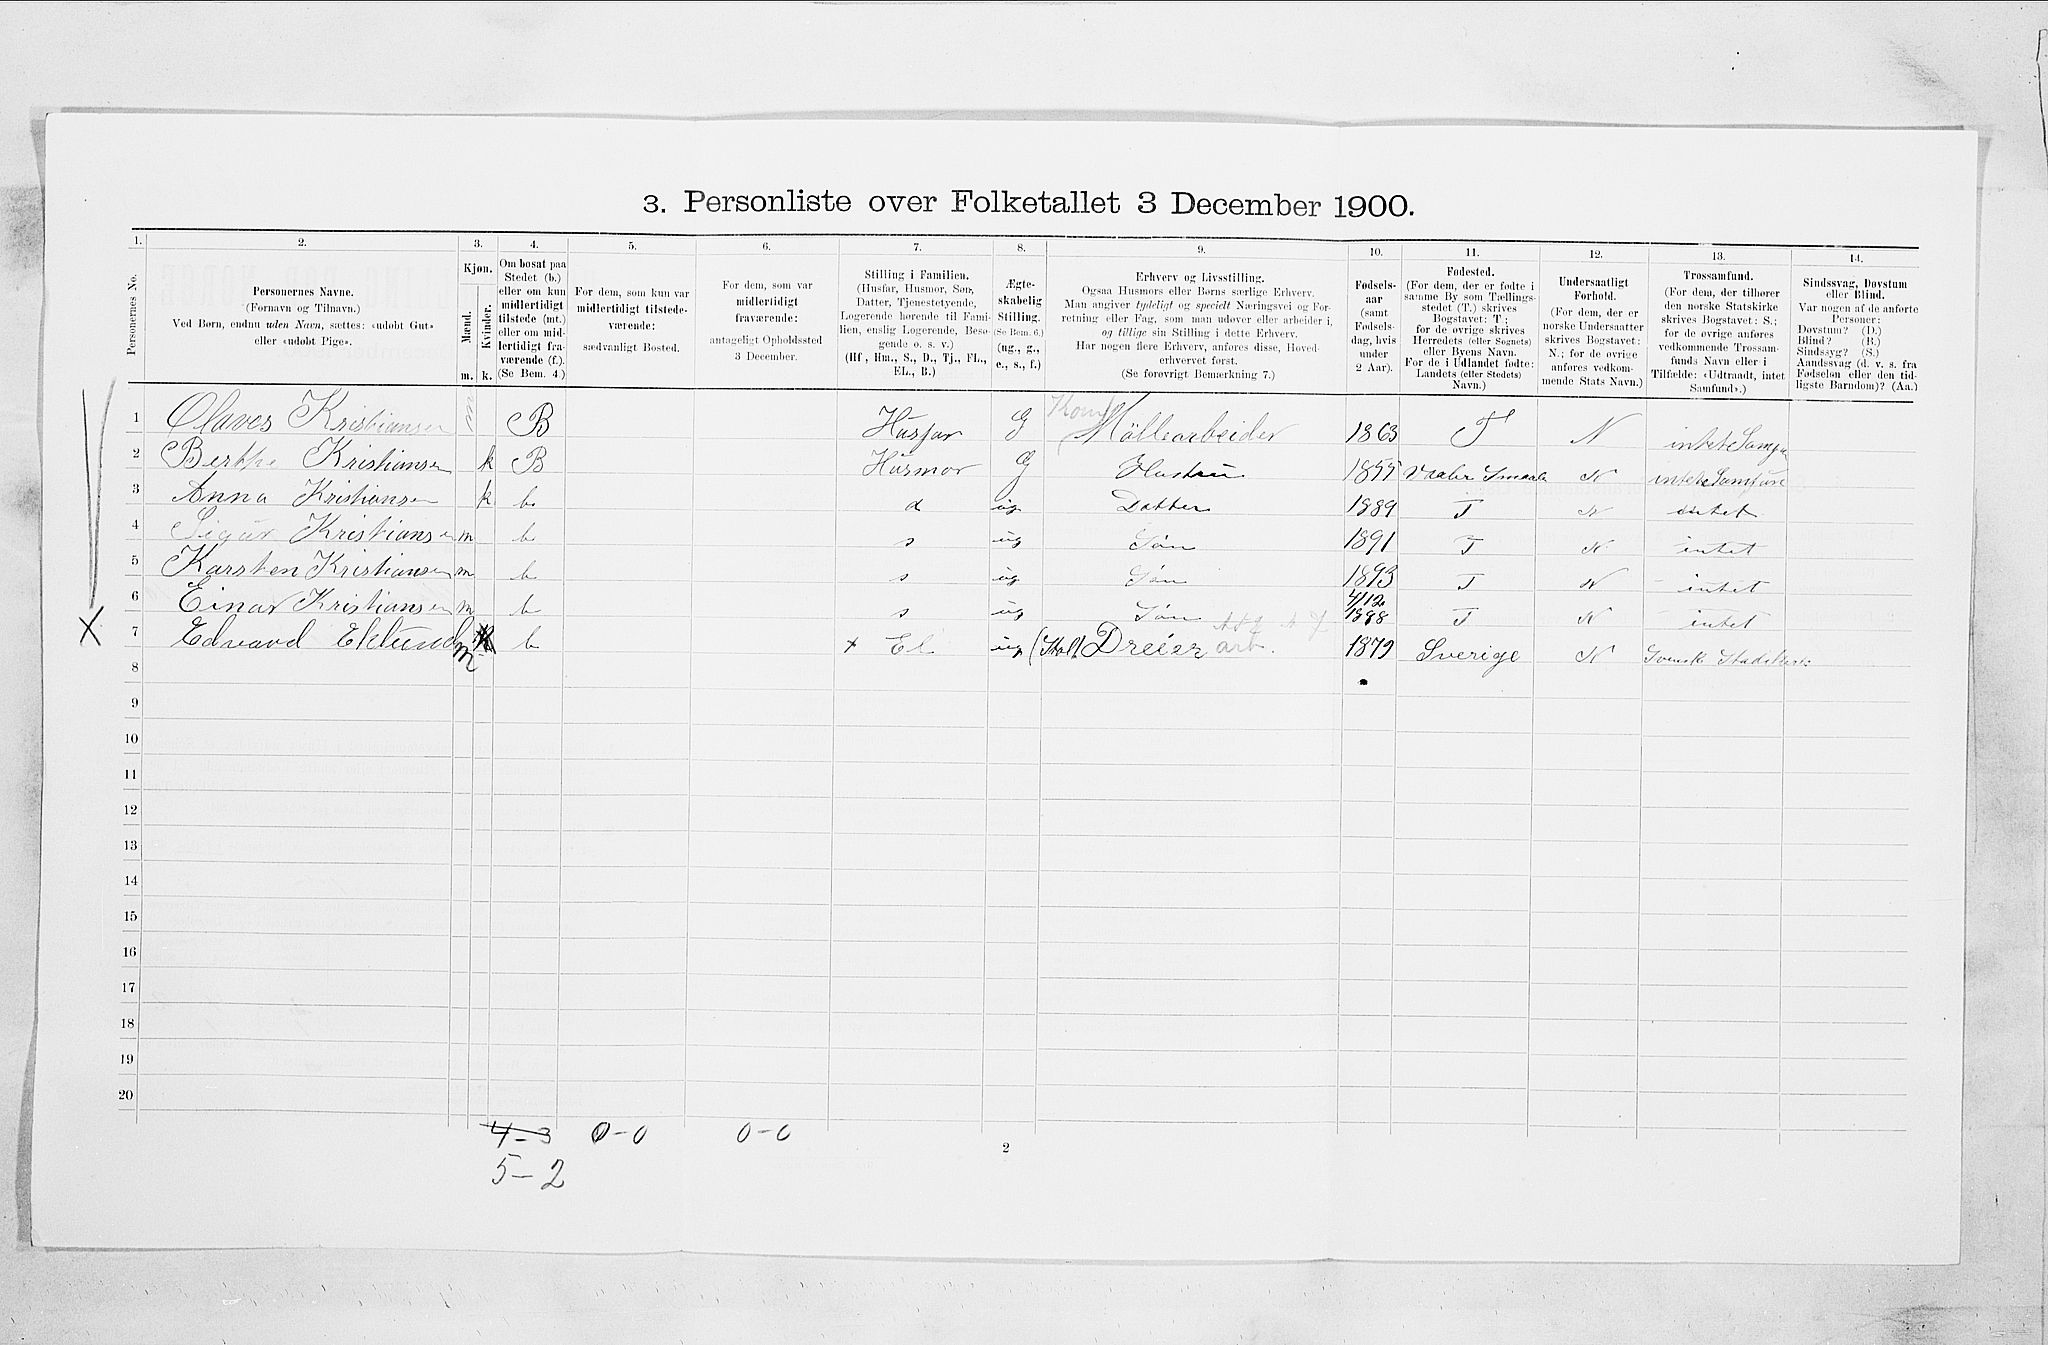 3. Personliste over Folketallet 3 December 1900.
1. 2. 3. 4. 5. 6. 7. 8. 9. 10. 11. 12. 13. 14.
Personernes No.
Personernes Navne.
(Fornavn og Tilnavn.)
Ved Børn, endnu uden Navn, sættes: «udøbt Gut»
eller «udøbt Pige».
Kjøn.
Mænd.
Kvinder.
m. k.
Om bosat paa
Stedet (b.)
eller om kun
midlertidigt
tilstede (mt.)
eller om mid-
lertidigt fra-
værende (f.).
(Se Bem. 4.)
For dem, som kun var
midlertidigt tilstede-
værende:
sædvanligt Bosted.
For dem, som var
midlertidigt
fraværende:
antageligt Opholdssted
3 December.
Stilling i Familien.
(Husfar, Husmor, Søn,
Datter, Tjenestetyende,
Logerende hørende til Fami-
lien, enslig Logerende, Besø-
gende o. s. v.)
(Hf., Hm., S., D., Tj., FL.,
EL., B.)
Ægte-
skabelig
Stilling.
(Se Bem. 6.)
(ug., g.,
e., s., f.)
Erhverv og Livsstilling.
Ogsaa Husmors eller Børns særlige Erhverv.
Man angiver tydeligt og specielt Næringsvei og For-
retning eller Fag, som man udøver eller arbeider i,
og tillige sin Stilling i dette Erhverv.
Har nogen flere Erhverv, anføres disse, Hoved-
erhvervet først.
(Se forøvrigt Bemærkning 7.)
Fødsels-
aar
(samt
Fødsels-
dag, hvis
under
2 Aar).
Fødested.
(For dem, der er fødte i
samme By som Tællings-
stedet (T.) skrives
Bogstavet: T;
for de øvrige skrives
Herredets (eller Sognets)
eller Byens Navn.
For de i Udlandet fødte:
Landets (eller Stedets)
Navn.)
Undersaatligt
Forhold.
(For dem, der er
norske Undersaatter
skrives Bogstavet:
N.; for de øvrige
anføres vedkom-
mende Stats Navn.)
Trossamfund.
(For dem, der tilhører
den norske Statskirke
skrives Bogstavet: S.;
for de øvrige anføres
vedkommende Trossam-
funds Navn eller i
Tilfælde: «Udtraadt, intet
Samfund».)
Sindssvag, Døvstum
eller Blind.
Var nogen af de anførte
Personer:
Døvstum? (D.)
Blind? (B.)
Sindssyg? (S.)
Aandssvag (d. v. s. fra
Fødselen eller den tid-
ligste Barndom)? (Aa.)
1 Olaves Kristiansen m B Husfar G Møllearbeider 1863 T N intet Samfu
2 Berthe Kristiansen k B Husmor G Hustru 1855 Vaaler Smaale N intet Samfun
3 Anna Kristiansen k b d ug Datter 1889 T N intet
4 Sigur Kristiansen m b s ug Søn 1891 T N intet
5 Karsten Kristiansen m b s ug Søn 1893 T N intet
6 Einar Kristiansen m b s ug Søn 4/12 1898 T N intet
X 7 Edvard Eklund m b x El ug Dreier arb. 1879 Sverige N Svensk Stadskirk
8
9
10
11
12
13
14
15
16
17
18
19
20
4-3 0-0 0-0
5-2
2